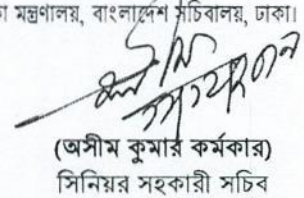 মন্ত্রণালয়, বাংলাদেশ সচিবালয়, ঢাকা।
(অসীম কুমার কর্মকার)
সিনিয়র সহকারী সচিব